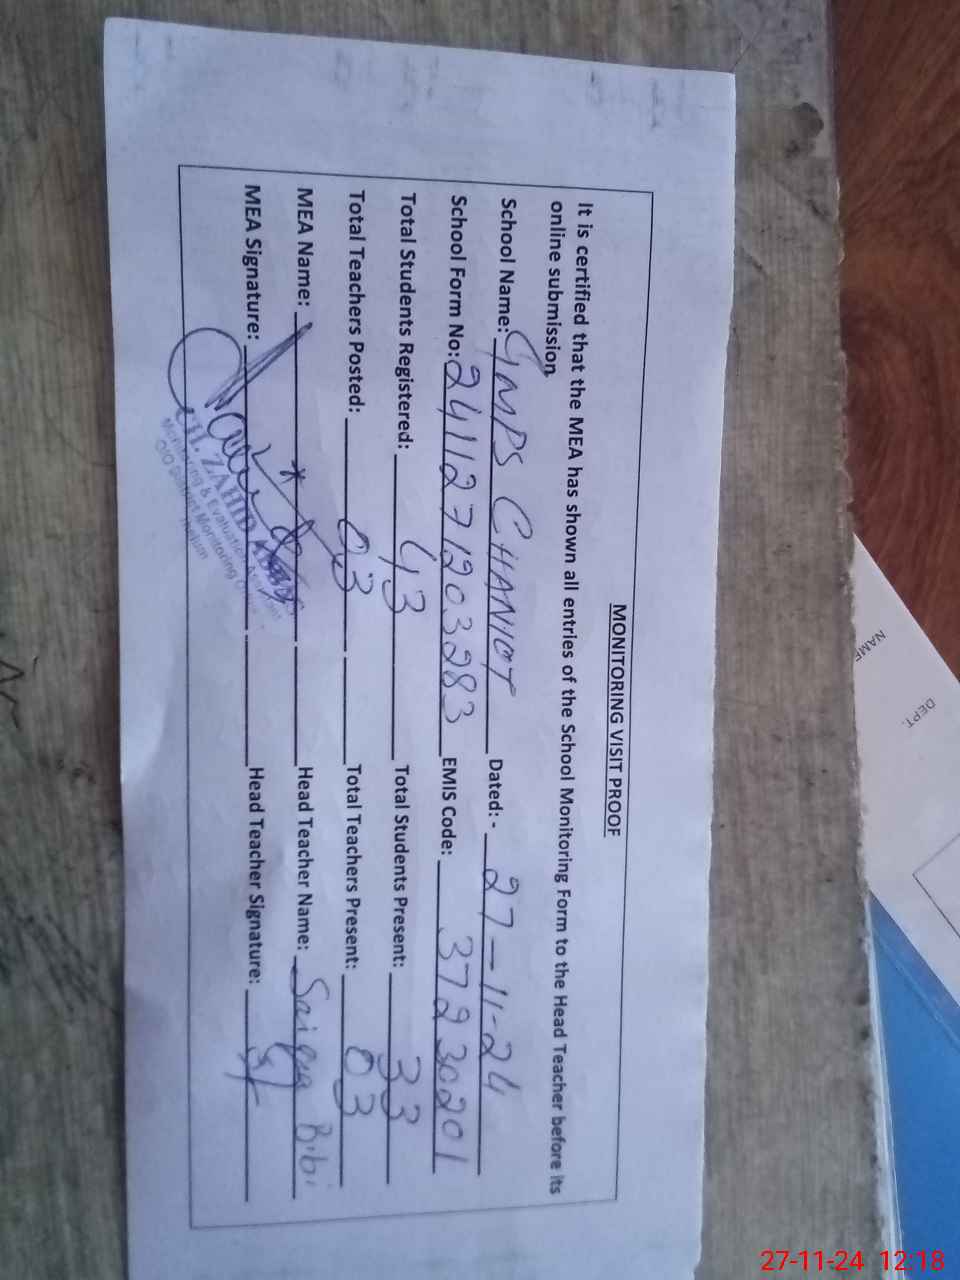 MONITORING VISIT PROOF
It is certified that the MEA has shown all entries of the School Monitoring Form to the Head Teacher before its
online submission
School Name: GMPS CHANIOT Dated: - 27-11-24
School Form No: 2411271203283 EMIS Code: 37230201
Total Students Registered: 43 Total Students Present: 33
Total Teachers Posted: 03 Total Teachers Present: 03
MEA Name: Head Teacher Name: Saiqa Bibi
MEA Signature: Head Teacher Signature:
CH. ZAHID
Monitoring & Evaluation
O/O District Monitoring
NAME
DEPT.
27-11-24 12:18